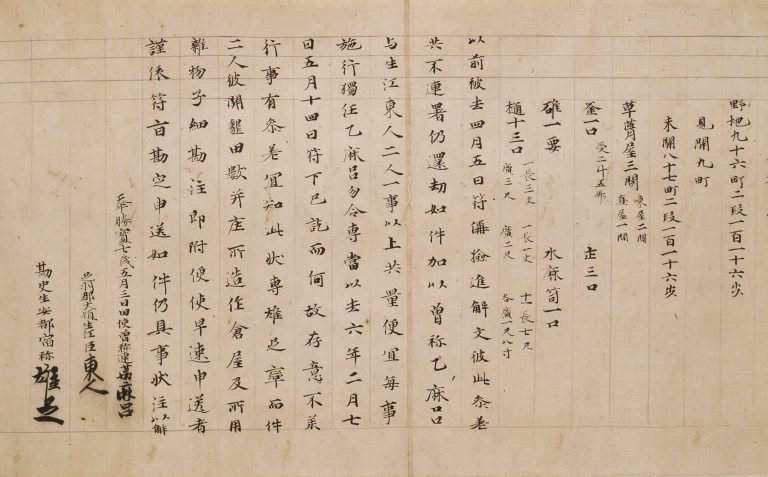 野地九十六町二段一百一十六歩
見開九町
未開八十七町二段一百一十六歩
草葺屋三間 東屋二間 真屋一間
釜一口 受二斗五升 走三口
碓一要 水麻笥一口
樋十三口 一長三丈 廣三尺 一長一丈 廣二尺 十一長七尺 各廣一尺八寸
以前被去四月五日符偁撿進解文彼此参差
共不連署仍還却如件加以曽祢乙麻呂
与生江東人二人一事以上共量便宜毎事
施行獨任乙麻呂勿令専當以去六年二月七
日五月十四日符下已訖而何故存意不葉
行事有参差宜知此状専雄足等而件
二人彼開墾田數并庄所造作倉屋及所用
雜物子細勘注即附便使早速申送者
謹依符旨勘定申送如件仍具事状注以解
天平勝寳七歳五月三日田使曽祢連乙麻呂
足羽郡大領生江臣東人
勘史生安都宿祢雄足